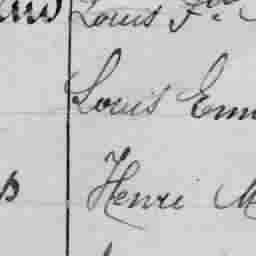 Louis F.
Louis Em
Henri M